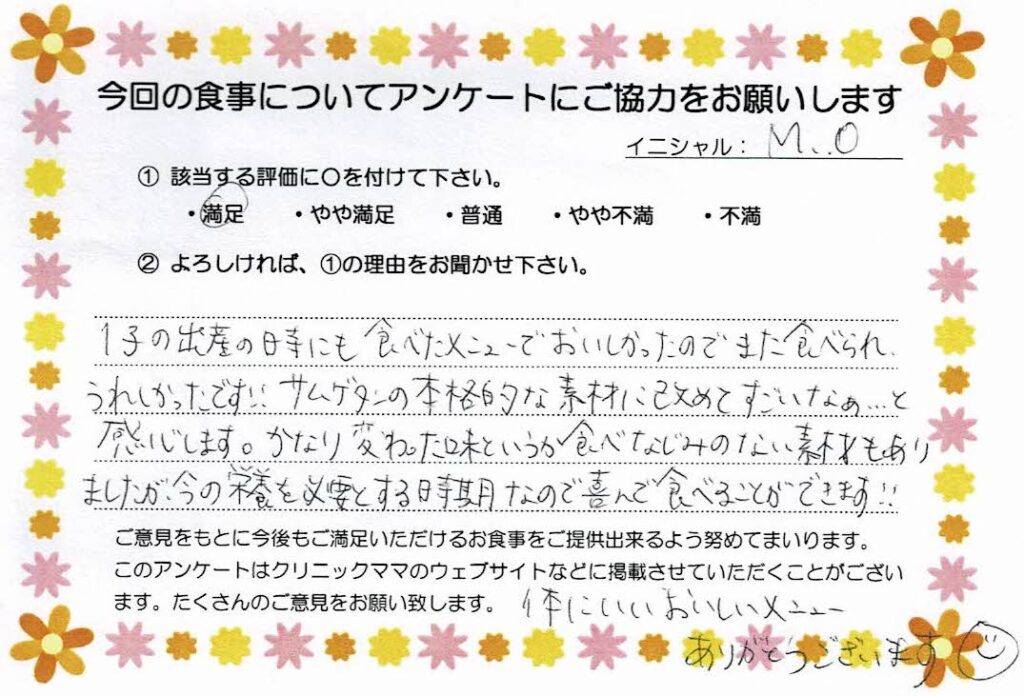 今回の食事についてアンケートにご協力をお願いします
イニシャル： M.O
① 該当する評価に〇を付けて下さい。
・満足 ・やや満足 ・普通 ・やや不満 ・不満
② よろしければ、①の理由をお聞かせ下さい。
1子の出産の時にも食べたメニューでおいしかったのでまた食べられ、
うれしかったです!! サムゲタンの本格的な素材に改めてすごいなぁ…と
感じします。かなり変わった味というか食べなじみのない素材もあり
ましたが、今の栄養を必要とする時期なので喜んで食べることができます!!
ご意見をもとに今後もご満足いただけるお食事をご提供出来るよう努めてまいります。
このアンケートはクリニックママのウェブサイトなどに掲載させていただくことがござい
ます。たくさんのご意見をお願い致します。 体にいいおいしいメニュー
ありがとうございます